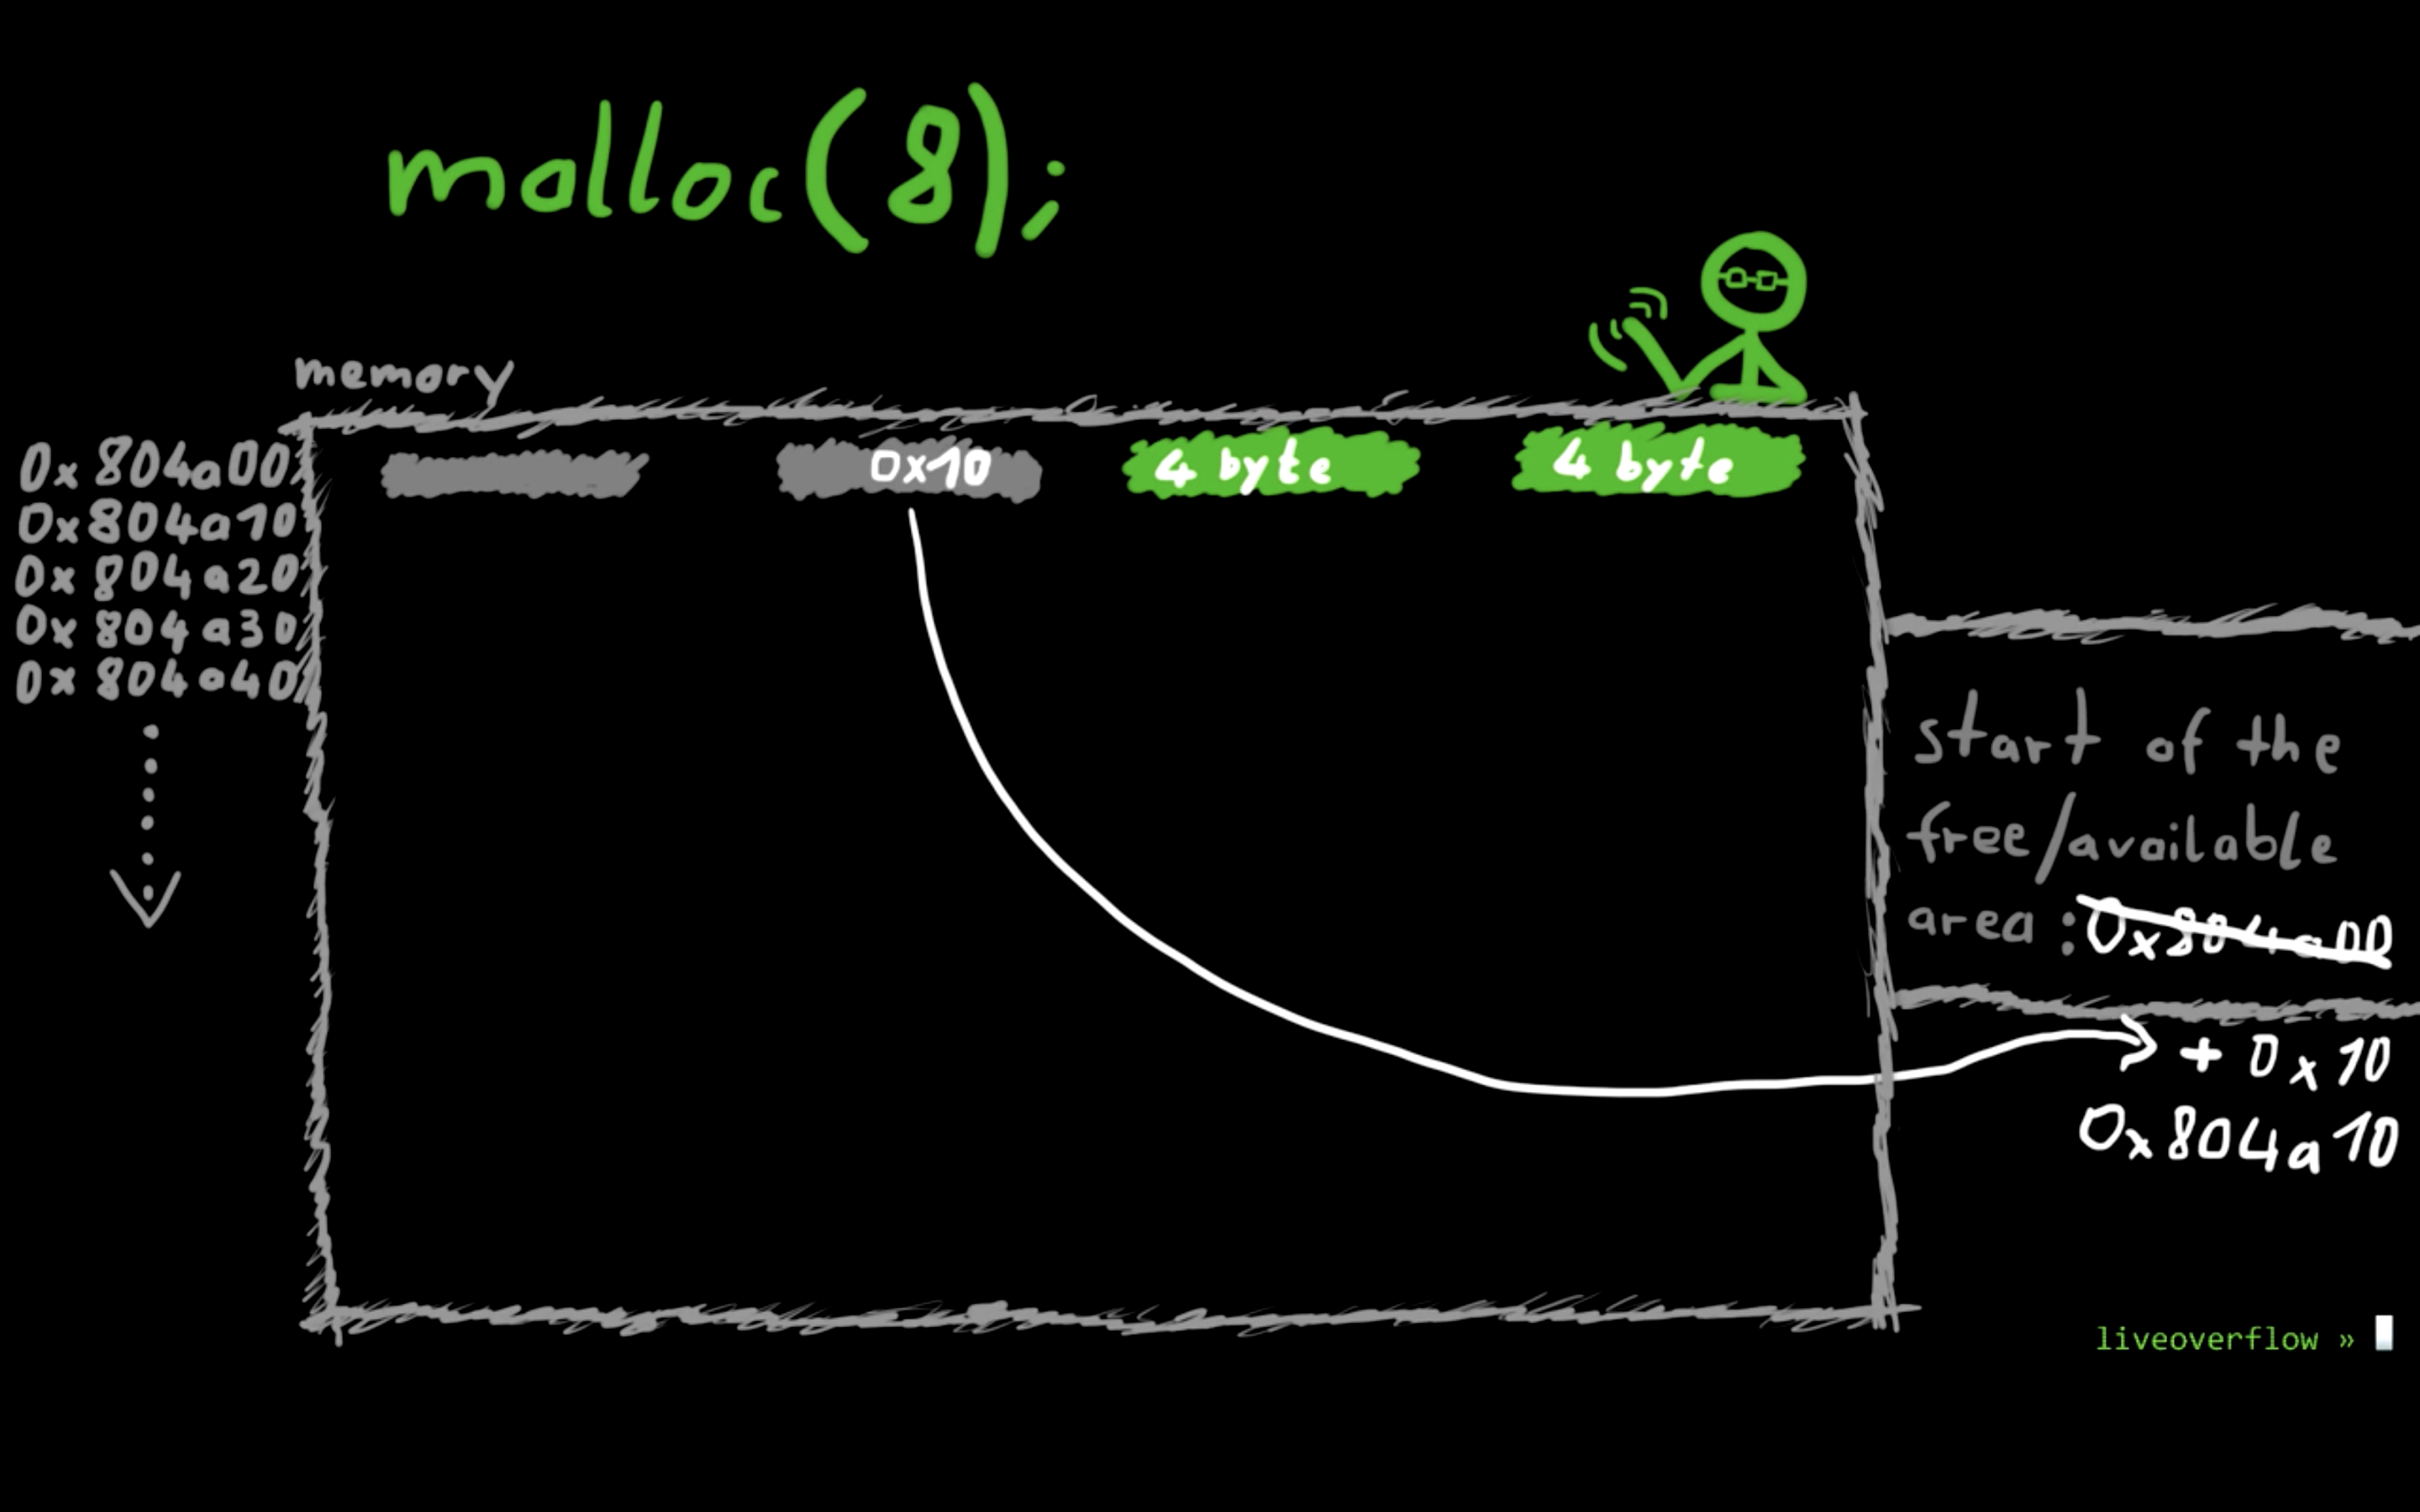 malloc(8);
memory
0x804a00
0x804a10
0x804a20
0x804a30
0x804a40
0x10
4 byte
4 byte
start of the
free/available
area: 0x804a00
+ 0x10
0x804a10
liveoverflow »